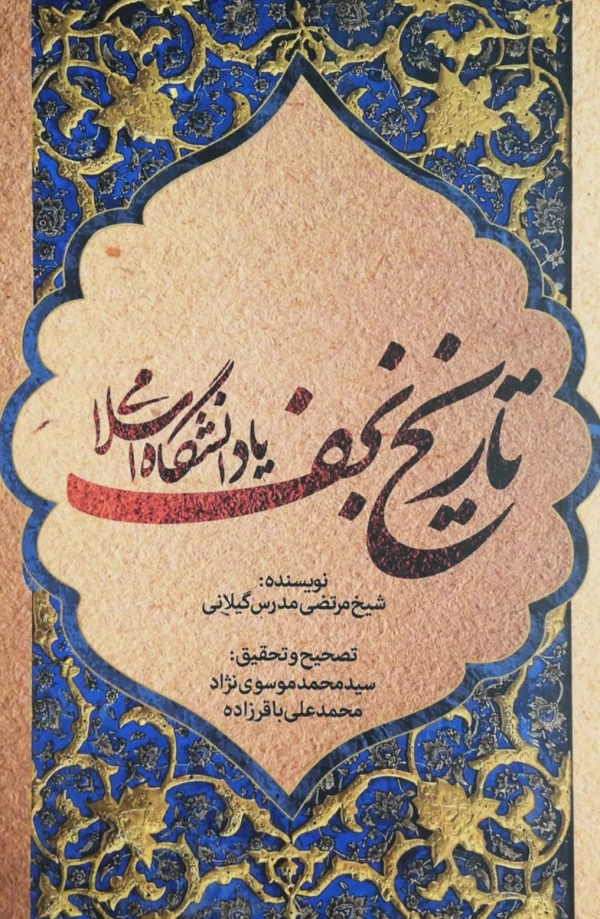 تاریخ نجف
یا دانشگاه اسلامی
نویسنده:
شیخ مرتضی مدرس گیلانی
تصحیح و تحقیق:
سید محمد موسوی نژاد
محمد علی باقرزاده